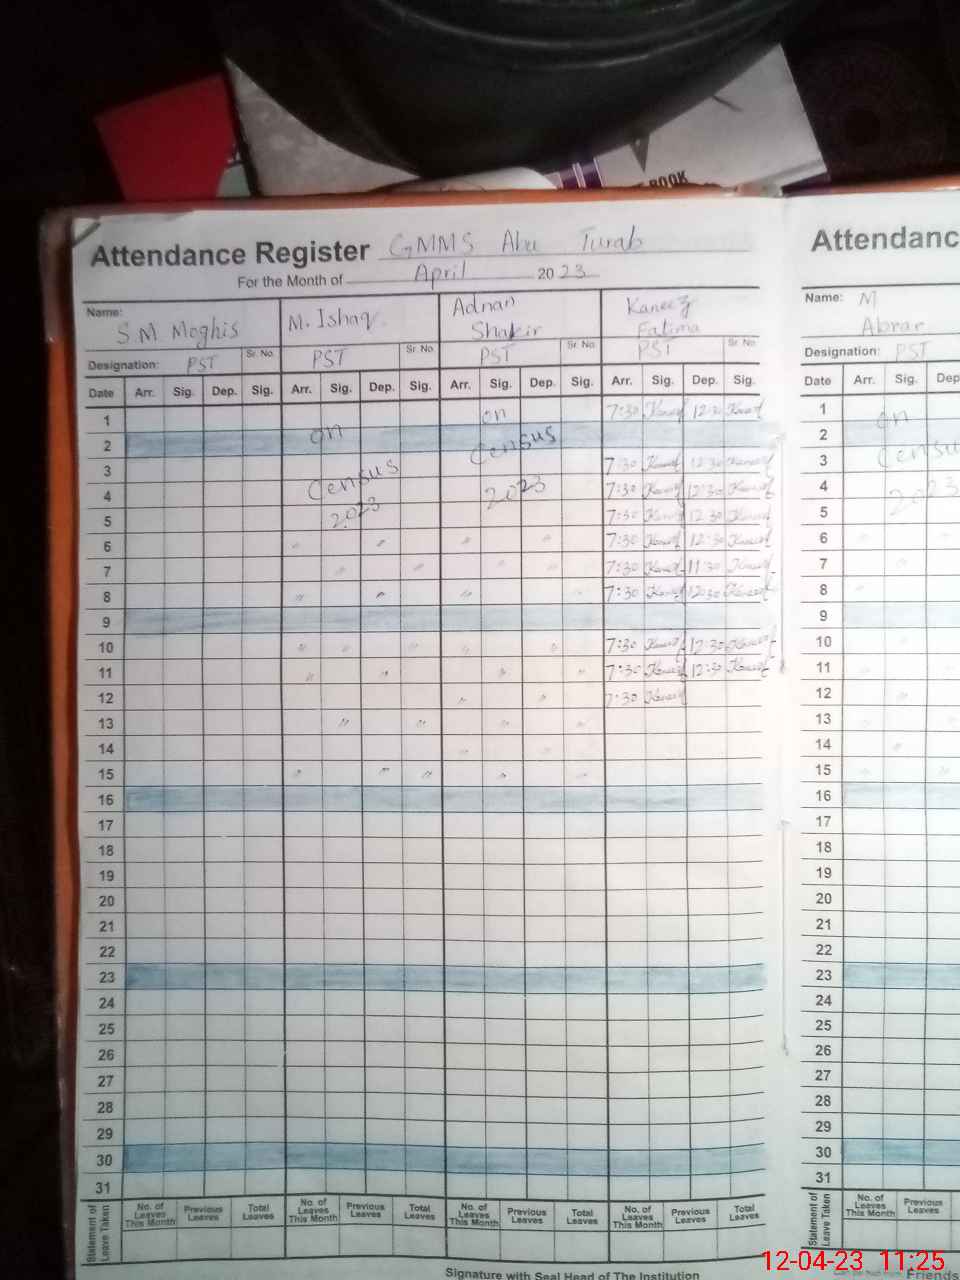 BOOK
Attendance Register GMMS Abu Turab
For the Month of April 2023
Name: S M Moghis M. Ishaq Adnan Shakir Kaneez Fatima
Designation: PST Sr. No. PST Sr. No. PST Sr. No. PST Sr. No.
Date Arr. Sig. Dep. Sig. Arr. Sig. Dep. Sig. Arr. Sig. Dep. Sig. Arr. Sig. Dep. Sig.
1 on 7:30 12:30
2 on Census
3 Census 7:30 12:30
4 2023 7:30 12:30
5 2023 7:30 12:30
6 " " " " 7:30 12:30
7 " " " " 7:30 11:30
8 " " " " 7:30 12:30
9
10 " " " " " 7:30 12:30
11 " " " " 7:30 12:30
12 " " 7:30
13 " " " "
14 " "
15 " " " " "
16
17
18
19
20
21
22
23
24
25
26
27
28
29
30
31
Statement of Leave Taken
No. of Leaves This Month Previous Leaves Total Leaves No. of Leaves This Month Previous Leaves Total Leaves No. of Leaves This Month Previous Leaves Total Leaves No. of Leaves This Month Previous Leaves Total Leaves
Signature with Seal Head of The Institution
Attendanc
Name: M Abrar
Designation: PST
Date Arr. Sig. Dep
1 on
2
3 Censu
4 2023
5
6 " "
7 "
8 "
9
10 "
11 " "
12 "
13 " "
14 "
15 " "
16
17
18
19
20
21
22
23
24
25
26
27
28
29
30
31
Statement of Leave Taken
No. of Leaves This Month Previous Leaves
Friends
12-04-23 11:25